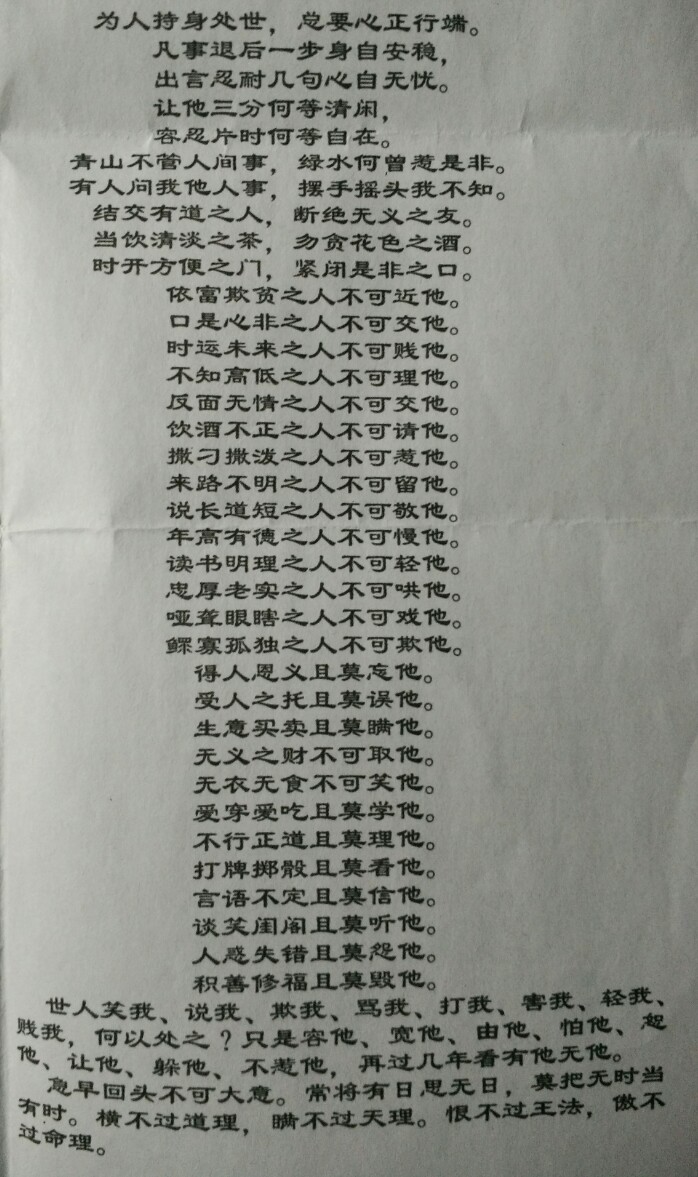 为人持身处世，总要心正行端。
凡事退后一步身自安稳，
出言忍耐几句心自无忧。
让他三分何等清闲，
容忍片时何等自在。
青山不管人间事，绿水何曾惹是非。
有人问我他人事，摆手摇头我不知。
结交有道之人，断绝无义之友。
当饮清淡之茶，勿贪花色之酒。
时开方便之门，紧闭是非之口。
依富欺贫之人不可近他。
口是心非之人不可交他。
时运未来之人不可贱他。
不知高低之人不可理他。
反面无情之人不可交他。
饮酒不正之人不可请他。
撒刁撒泼之人不可惹他。
来路不明之人不可留他。
说长道短之人不可敬他。
年高有德之人不可慢他。
读书明理之人不可轻他。
忠厚老实之人不可哄他。
哑聋眼瞎之人不可戏他。
鳏寡孤独之人不可欺他。
得人恩义且莫忘他。
受人之托且莫误他。
生意买卖且莫瞒他。
无义之财不可取他。
无衣无食不可笑他。
爱穿爱吃且莫学他。
不行正道且莫理他。
打牌掷骰且莫看他。
言语不定且莫信他。
谈笑闺阁且莫听他。
人惑失错且莫怨他。
积善修福且莫毁他。
世人笑我、说我、欺我、骂我、打我、害我、轻我、
贱我，何以处之？只是容他、宽他、由他、怕他、恕
他、让他、躲他、不惹他，再过几年看有他无他。
急早回头不可大意。常将有日思无日，莫把无时当
有时。横不过道理，瞒不过天理。恨不过王法，傲不
过命理。